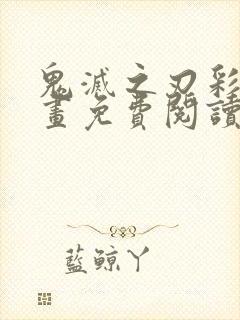 鬼滅之刃彩
畫免費閱讀
藍鯨丫